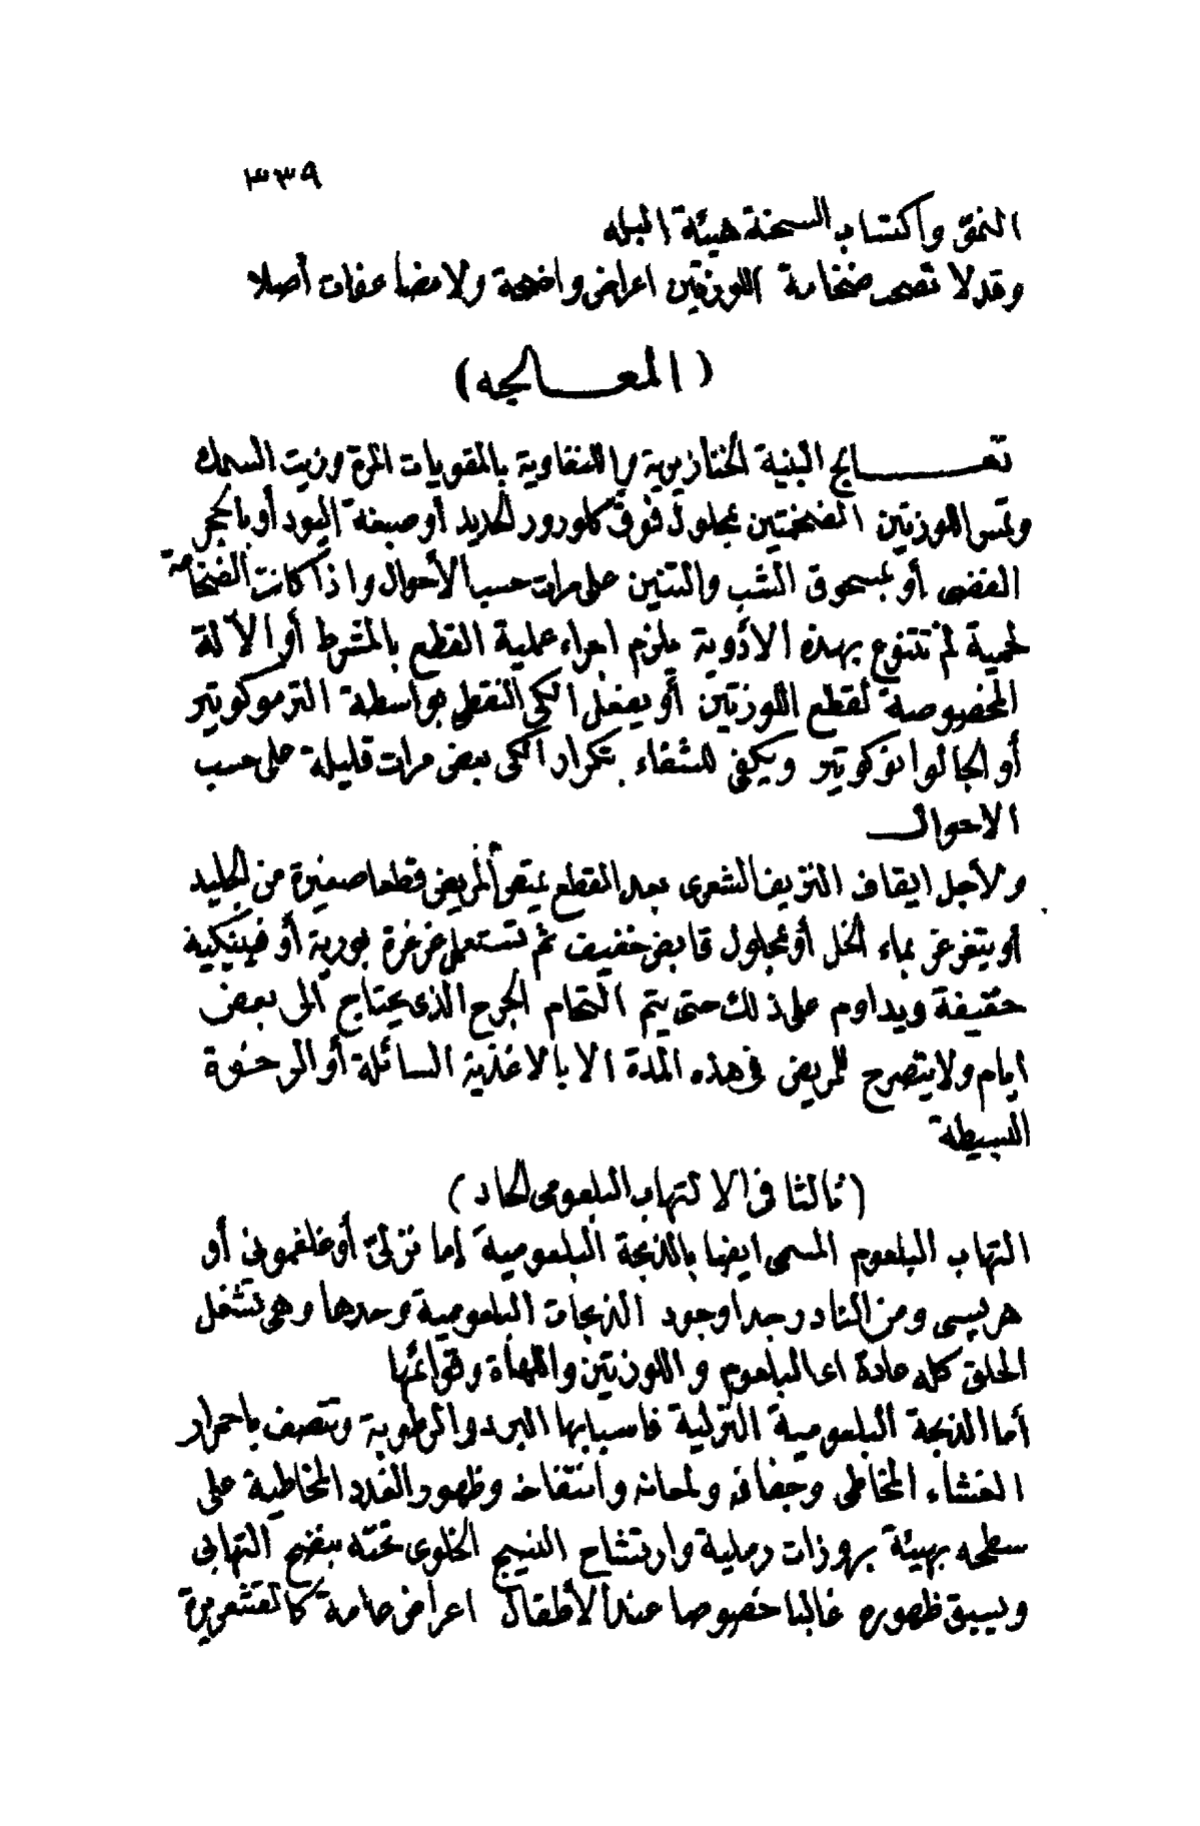 ٣٣٩
النمو واكتساب السحنة هيئة البله
وقد لا تصحب ضخامة اللوزتين اعراض واضحة ولا مضاعفات أصلا
(المعـــالجه)
تعـــالج البنية الخنازيرية واللنفاوية بالمقويات المرة وزيت السمك
وتمس اللوزتين الضخمتين بمحلول فوق كلورور الحديد أو صبغة اليود أو بالحجر
الفضى أو بمسحوق الشب والتنين على مرات حسب الأحوال واذا كانت الضخامة
لحمية لم تتنوع بهذه الادوية يلزم اجراء عملية القطع بالمشرط أو الآلة
المخصوصة لقطع اللوزتين أو يفعل الكى النقطى بواسطة الترموكوتير
أو الجالوانوكوتير ويكفى للشفاء تكرار الكى بعض مرات قليلة على حسب
الاحوال
ولاجل ايقاف النزيف الشعرى بعد القطع يمتص المريض قطعا صغيرة من الجليد
أو يتغرغر بماء الخل أو بمحلول قابض خفيف ثم تستعمل غرغرة بورية أو فينيكية
خفيفة ويداوم على ذلك حتى يتم التحام الجرح الذى يحتاج الى بعض
ايام ولا يتصرح للمريض فى هذه المدة الا بالاغذية السائلة أو الرخوة
البسيطة
(ثالثا فى الالتهاب البلعومى الحاد)
التهاب البلعوم المسمى ايضا بالذبحة البلعومية إما نزلى أو غلغمونى أو
هربسى ومن النادر جدا وجود الذبحات البلعومية وحدها وهى تشغل
الحلق كله عادة اى البلعوم واللوزتين واللهاة وقوائمها
أما الذبحة البلعومية النزلية فاسبابها البرد والرطوبة وتتصف باحمرار
الغشاء المخاطى وجفافه ولمعانه وانتفاخه وظهور الغدد المخاطية على
سطحه بهيئة بروزات رملية وارتشاح النسيج الخلوى تحته بنضح التهابى
ويسبق ظهوره غالبا خصوصا عند الأطفال اعراض عامة كالقشعريرة